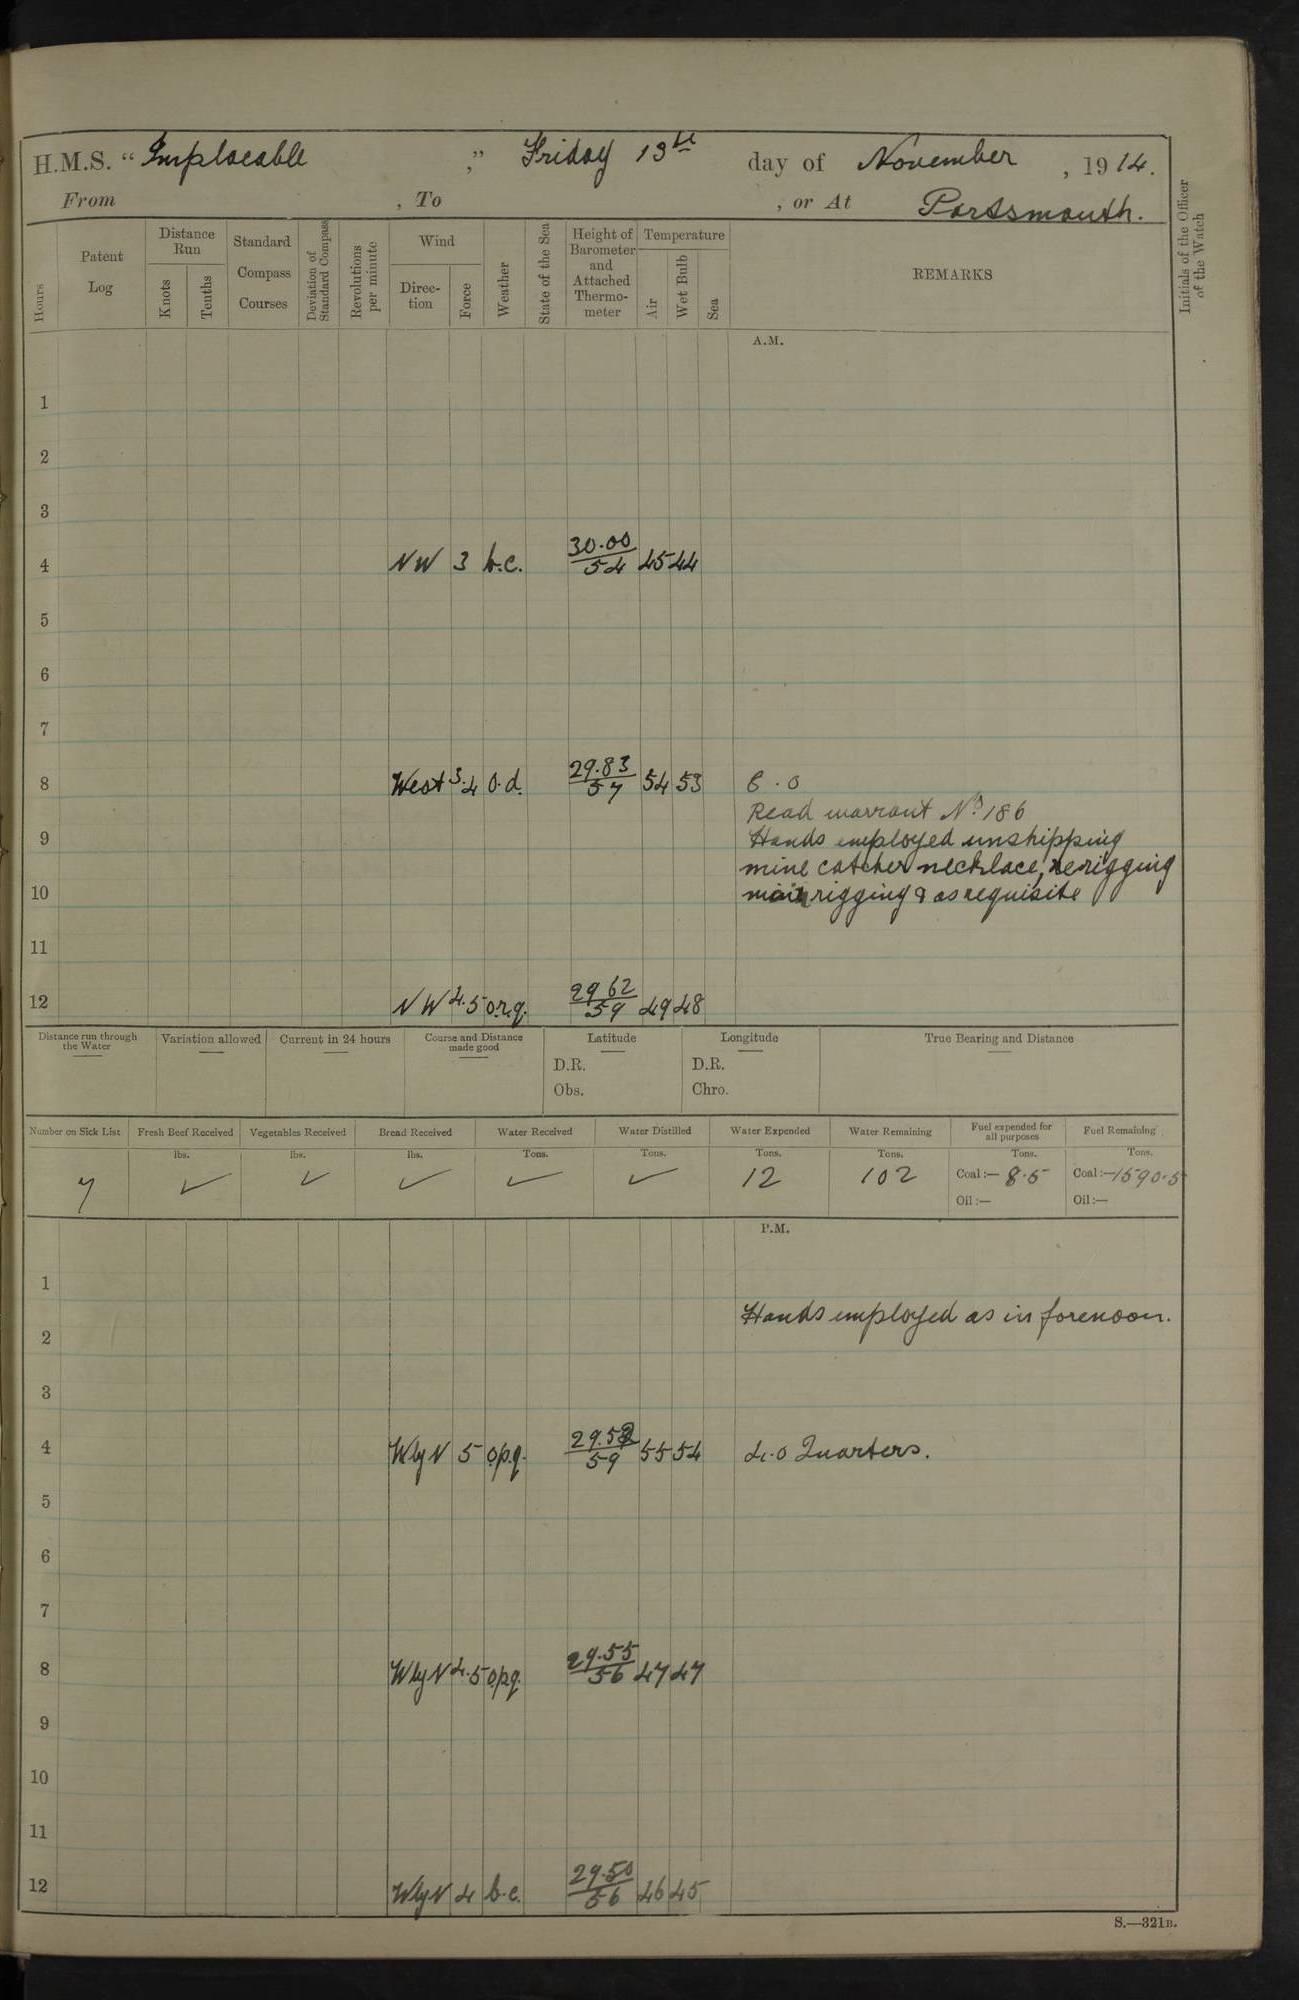 H.M.S. “ Implacable ” Friday 13th day of November , 1914.
From , To , or At Portsmouth.
Hours
Patent Log
Distance Run
Knots
Tenths
Standard Compass Courses
Deviation of Standard Compass
Revolutions per minute
Wind
Direction
Force
Weather
State of the Sea
Height of Barometer and Attached Thermometer
Temperature
Air
Wet Bulb
Sea
REMARKS
Initials of the Officer of the Watch
A.M.
1
2
3
4 NW 3 b.c. 30.00/54 45 44
5
6
7
8 West 3.4 o.d. 29.83/57 54 53 6.0
Read warrant No. 186
9 Hands employed unshipping
mine catcher necklace, rerigging
10 main rigging & as requisite
11
12 NW 4.5 o.r.q. 29 62/59 49 48
Distance run through the Water
Variation allowed
Current in 24 hours
Course and Distance made good
Latitude
D.R.
Obs.
Longitude
D.R.
Chro.
True Bearing and Distance
Number on Sick List
Fresh Beef Received
Vegetables Received
Bread Received
Water Received
Water Distilled
Water Expended
Water Remaining
Fuel expended for all purposes
Fuel Remaining
lbs. lbs. lbs. Tons. Tons. Tons. Tons. Tons. Tons.
7 ✓ ✓ ✓ ✓ ✓ 12 102 Coal :— 8.5 Coal :— 1590.5
Oil :— Oil :—
P.M.
1
Hands employed as in forenoon.
2
3
4 WbyN 5 o.p.q. 29.52/59 55 54 4.0 Quarters.
5
6
7
8 WbyN 4.5 o.p.q. 29.55/56 47 47
9
10
11
12 WbyN 4 b.c. 29.50/56 46 45
S.—321B.